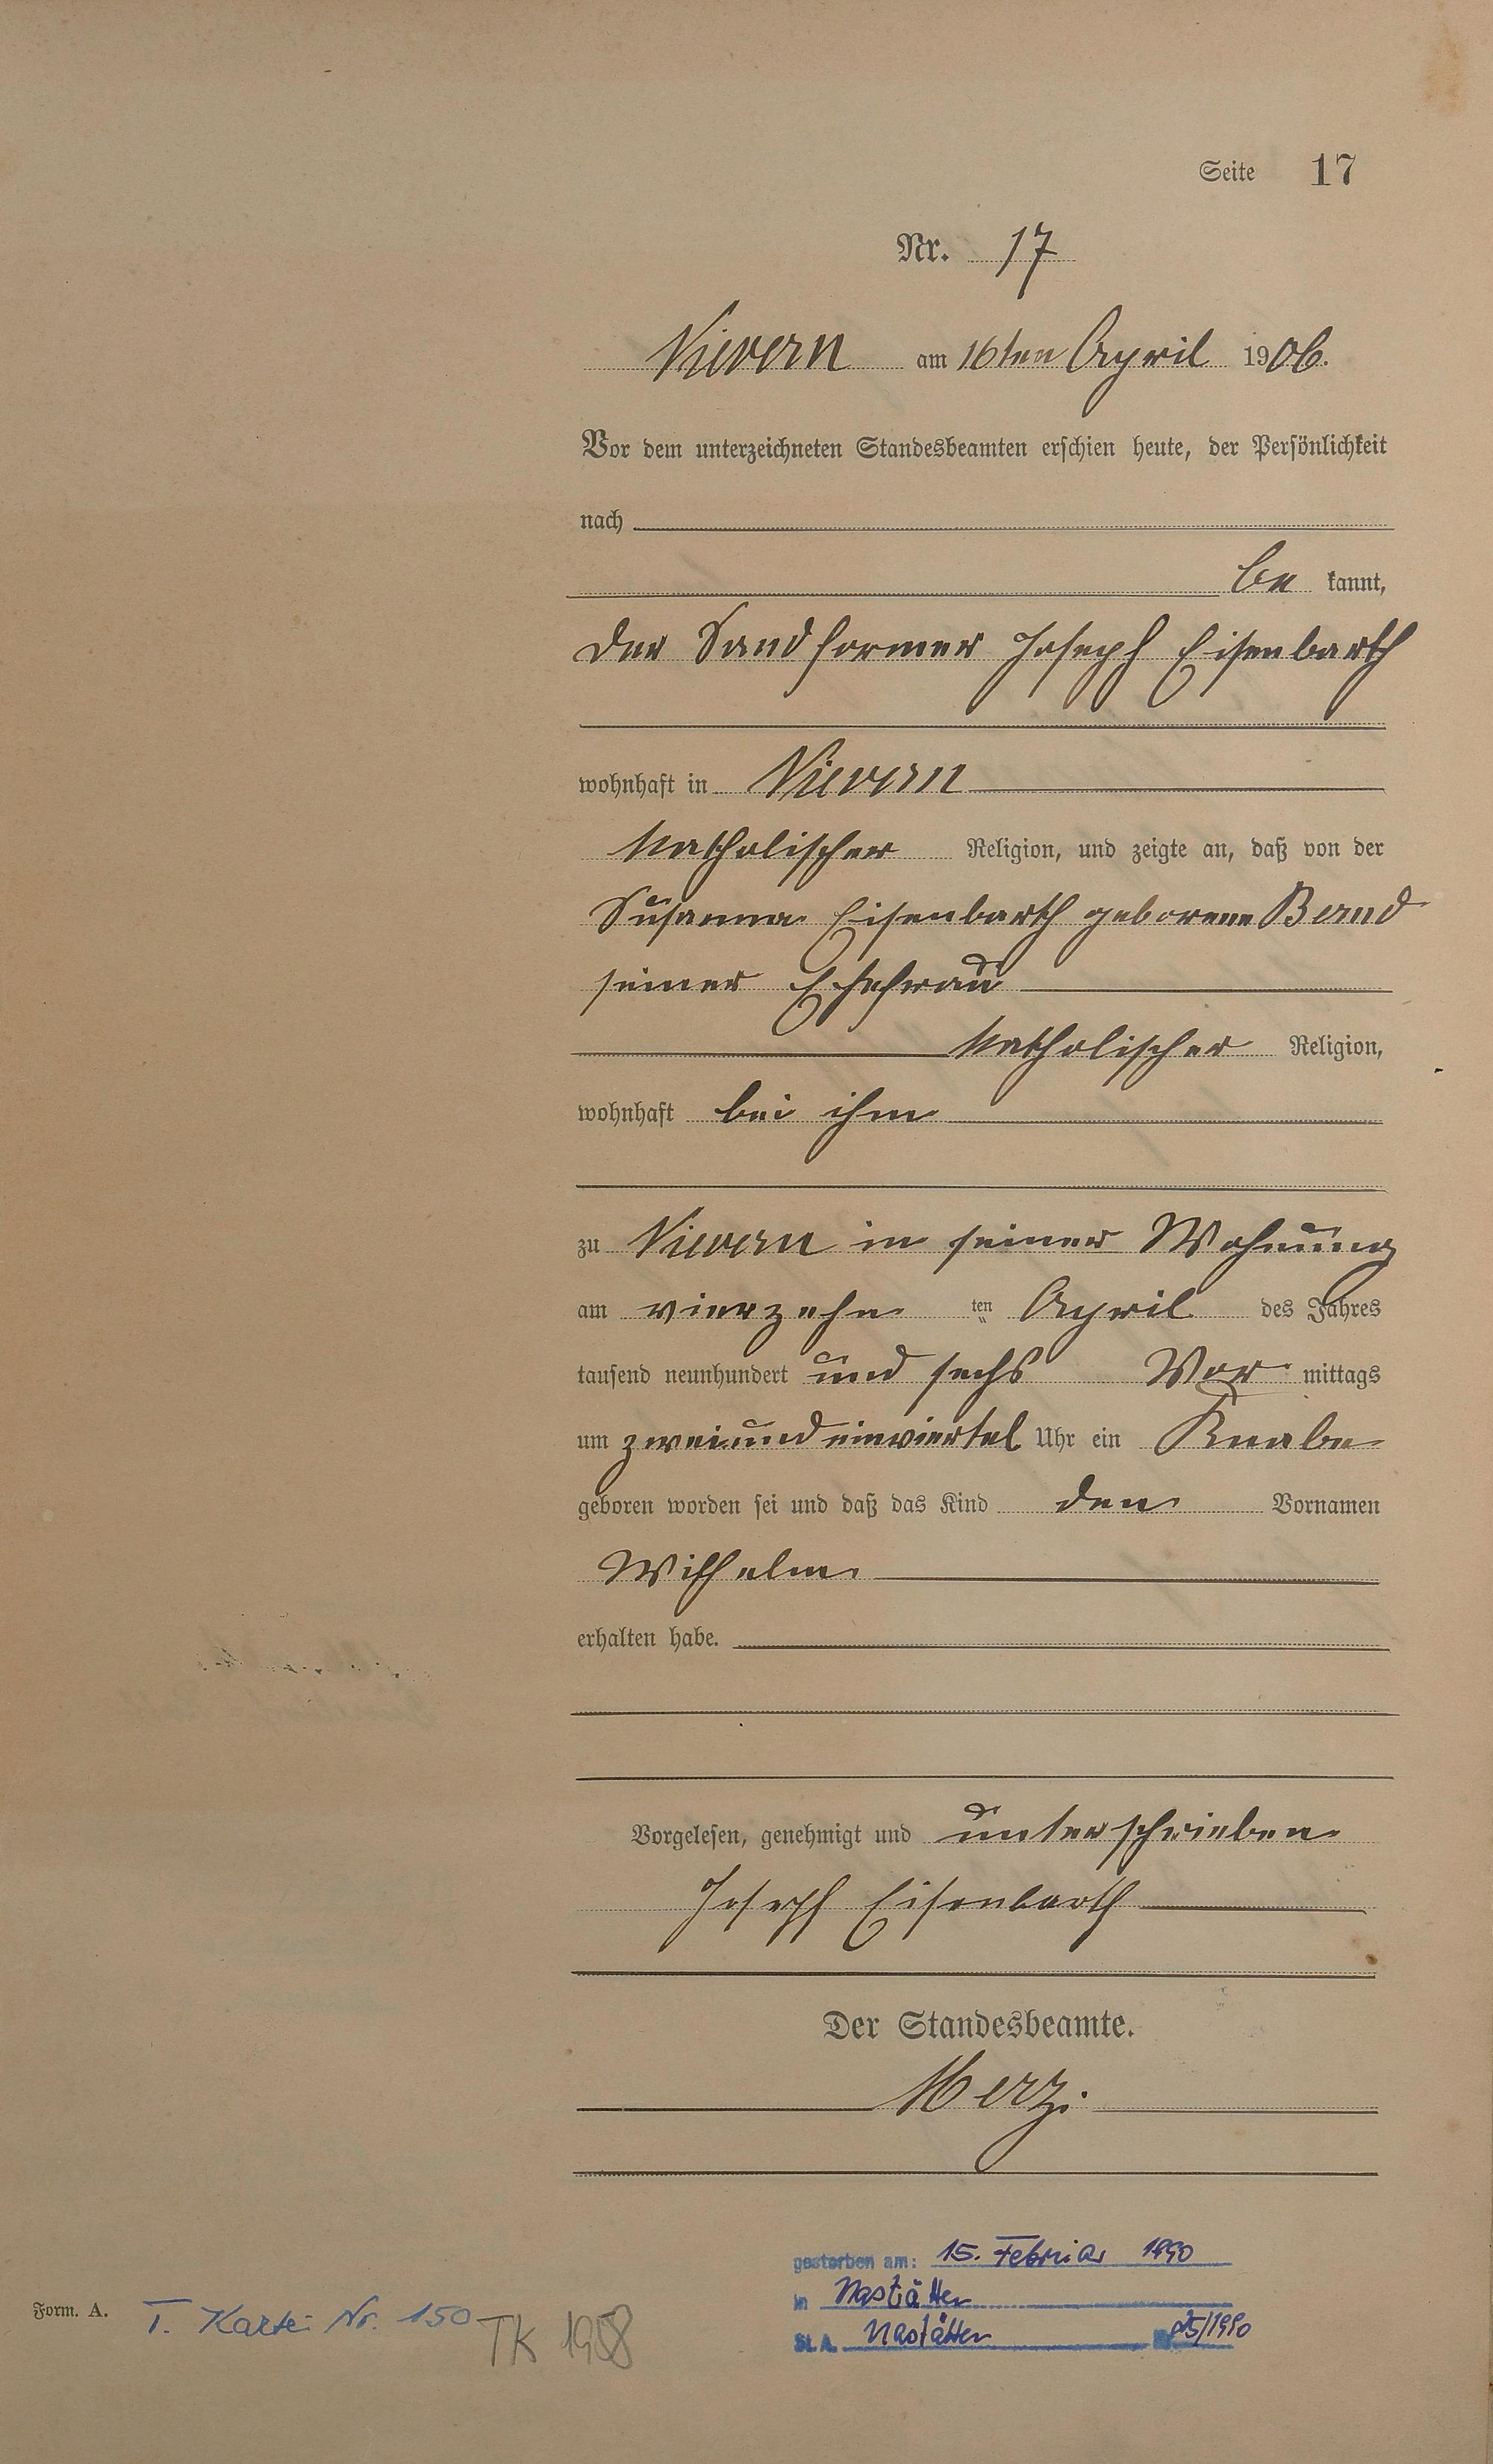 Seite 17
Nr. 17
Nievern am 16ten April 1906.
Vor dem unterzeichneten Standesbeamten erschien heute, der Persönlichkeit
nach
be kannt,
der Sandformer Joseph Eisenbarth
wohnhaft in Nievern
katholischer Religion, und zeigte an, daß von der
Susanna Eisenbarth geborene Bernd
seiner Ehefrau
katholischer Religion,
wohnhaft bei ihm
zu Nievern in seiner Wohnung
am vierzehn ten April des Jahres
tausend neunhundert und sechs Vor mittags
um zwei und einviertel Uhr ein Knabe
geboren worden sei und daß das Kind den Vornamen
Wilhelm
erhalten habe.
Vorgelesen, genehmigt und unterschrieben
Joseph Eisenbarth
Der Standesbeamte.
Merz.
gestorben am: 15. Februar 1990
in Nastätten
St. A. Nastätten 25/1990
Form. A. T. Kartei Nr. 150 TK 1958